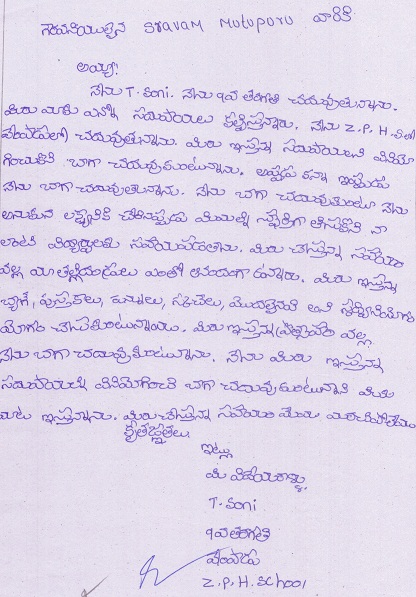 గౌరవనీయులైన Sravam Mutuporu వారికి
అయ్యా!
నేను T. Soni. నేను 9వ తరగతి చదువుతున్నాను.
మీరు మాకు ఎన్నో సదుపాయలు కల్పిస్తున్నారు. నేను Z.P.H.S లో
చదువుతున్నాను. మీరు ఇస్తున్న సదుపాయలని వినియో
గించుకుని బాగా చదువుకుంటున్నాను. అప్పుడు కన్నా ఇప్పుడు
నేను బాగా చదువుతున్నాను. నేను బాగా చదువుకుంటూ నేను
అనుకున లక్ష్యానికి చేరినప్పుడు మిమ్మల్ని స్ఫూర్తిగా తీసుకొని నా
లాంటి విద్యార్థులకు సహాయపడతాను. మీరు చేస్తున్న సహాయం
వల్ల మా తల్లిదండ్రులు ఎంతో ఆనందంగా ఉన్నారు. మీరు ఇస్తున్న
బ్యాగ్, పుస్తకాలు, పెన్నులు, స్కెచ్‌లు, మొదలైనవి అని
యోగం చేసుకుంటున్నాము. మీరు ఇస్తున్న ప్రోత్సాహం వల్ల
నేను బాగా చదువుకుంటున్నాను. నేను మీరు ఇస్తున్న
సదుపాయల్ని వినియోగించి బాగా చదువుకుంటున్నానని మీకు
మాట ఇస్తున్నాను. మీరు చేస్తున్న సహాయం మేము మరచిపోలేము
కృతజ్ఞతలు.
ఇట్లు
మీ విధేయురాలు
T. Soni
9వ తరగతి
Z.P.H. School